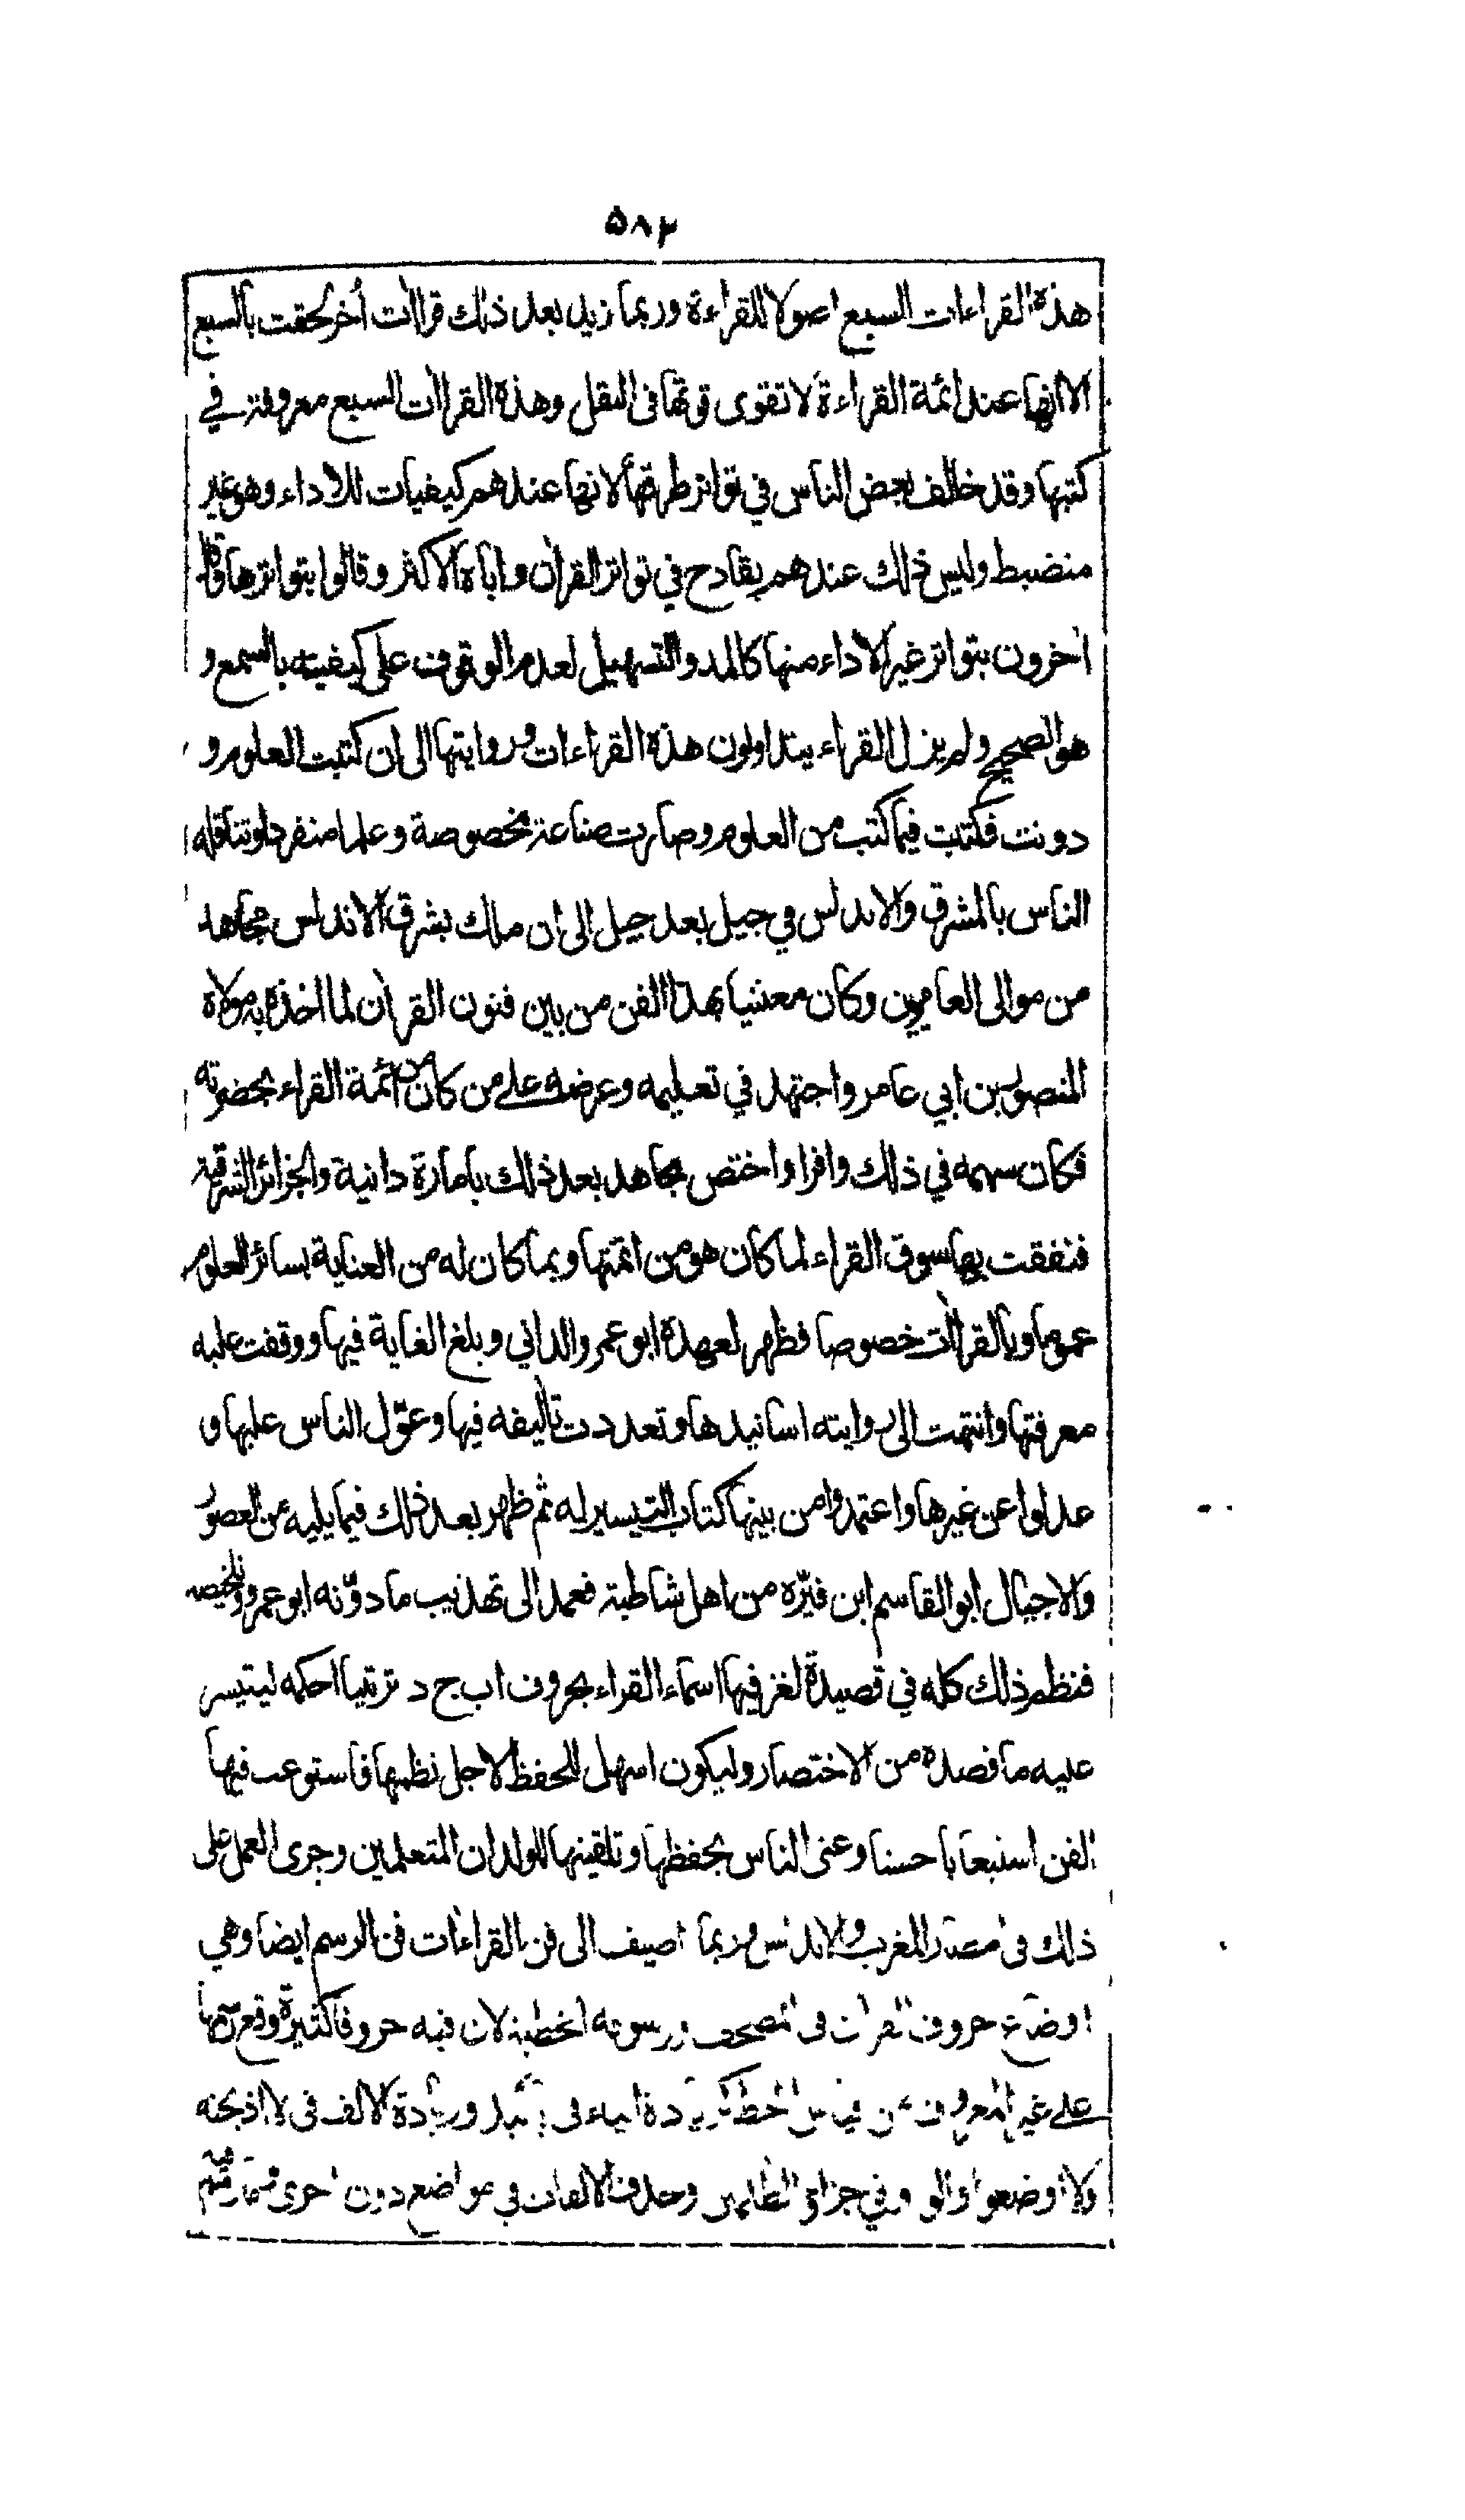 ٥٨٢
هذه القراءات السبع اصولا للقراءة وربما زيد بعد ذلك قراآت أخر لحقت بالسبع
الا انها عند ائمة القراءة لا تقوى قوتها فى النقل وهذه القراآت السبع معروفة في
كتبها وقد خالف بعض الناس في تواتر طرقها لانها عندهم كيفيات للاداء وهو غير
منضبط وليس ذلك عندهم بقادح في تواتر القرآن واباه الاكثر وقالوا بتواترها وقال
آخرون بتواتر غير الاداء منها كالمد والتسهيل لعدم الوقوف على كيفيته بالسمع و
هو الصحيح ولم يزل القراء يتداولون هذه القراءات وروايتها الى ان كتبت العلوم و
دونت فكتبت فيما كتب من العلوم وصارت صناعة مخصوصة وعلما منفردا وتناقله
الناس بالمشرق والاندلس في جيل بعد جيل الى ان ملك بشرق الاندلس مجاهد
من موالى العامريين وكان معتنيا بهذا الفن من بين فنون القرآن لما اخذه به مولاه
المنصور بن ابي عامر واجتهد في تعليمه وعرضه على من كان من ائمة القراء بحضرته
فكان سهمه في ذلك وافرا واختص مجاهد بعد ذلك بامارة دانية والجزائر الشرقية
فنفقت بها سوق القراء لما كان هو من ائمتها وبما كان له من العناية بسائر العلوم
عموما وبالقراآت خصوصا فظهر لعهده ابو عمرو الداني وبلغ الغاية فيها ووقفت عليه
معرفتها وانتهت الى روايته اسانيدها وتعددت تآليفه فيها وعوّل الناس عليها و
عدلوا عن غيرها واعتمدوا من بينها كتاب التيسير له ثم ظهر بعد ذلك فيما يليه من العصور
والاجيال ابو القاسم ابن فيّره من اهل شاطبة فعمد الى تهذيب ما دوّنه ابو عمرو وتلخيصه
فنظم ذلك كله في قصيدة لغز فيها اسماء القراء بحروف ا ب ج د ترتيبا احكمه ليتيسر
عليه ما قصده من الاختصار وليكون اسهل للحفظ لاجل نظمها فاستوعب فيها
الفن استيعابا حسنا وعنى الناس بحفظها وتلقينها للولدان المتعلمين وجرى العمل على
ذلك فى امصار المغرب والاندلس وربما اضيف الى فن القراءات فن الرسم ايضا وهي
اوضاع حروف القرآن فى المصحف ورسومه الخطية لان فيه حروفا كثيرة وقع رسمها
على غير المعروف من قياس الخط كزيادة الياء فى باييد وزيادة الالف فى لا اذبحنه
ولا اوضعوا والواو في جزاؤ الظالمين وحذف الالفات في مواضع دون اخرى وما رسم فيه